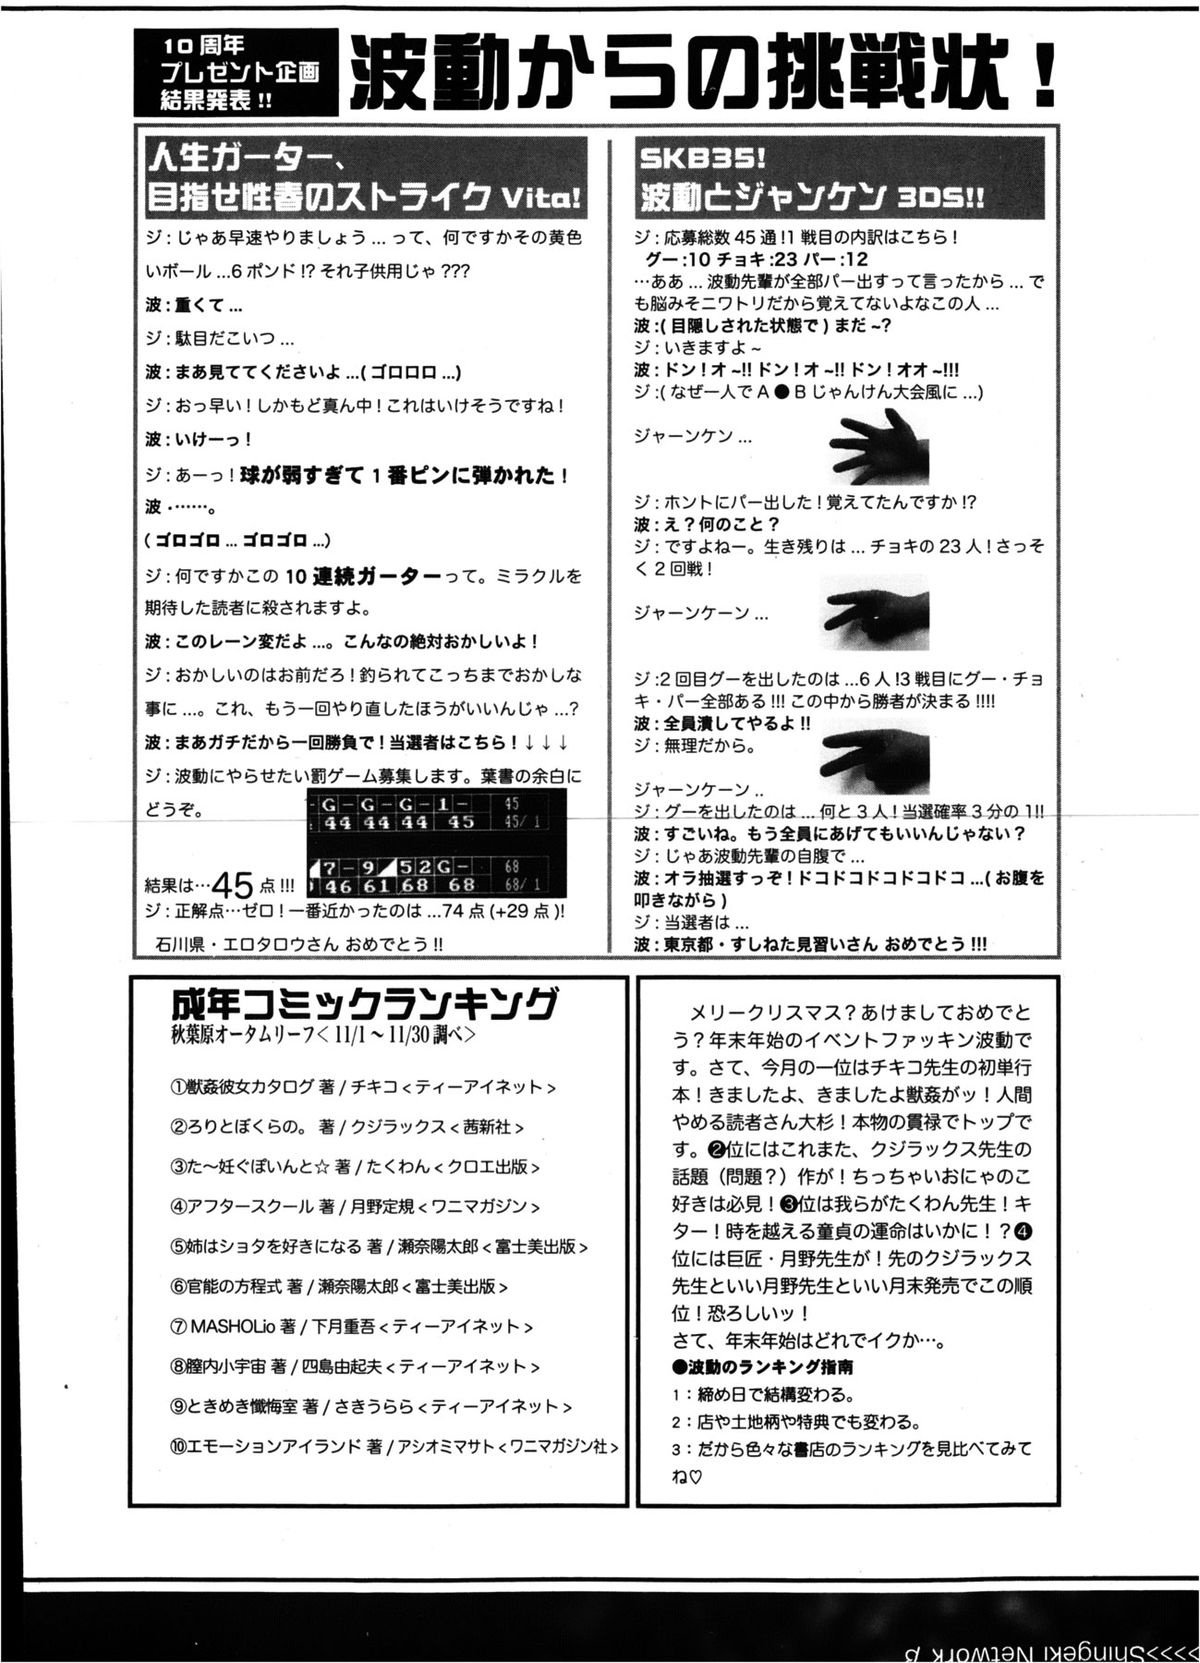 10周年
プレゼント企画
結果発表!!
波動からの挑戦状！
人生ガーター、
目指せ性春のストライクVita!
ジ：じゃあ早速やりましょう…って、何ですかその黄色
いボール…6ポンド!?それ子供用じゃ???
波：重くて…
ジ：駄目だこいつ…
波：まあ見ててくださいよ…(ゴロロロ…)
ジ：おっ早い！しかもど真ん中！これはいけそうですね！
波：いけーっ！
ジ：あーっ！球が弱すぎて1番ピンに弾かれた！
波・……。
(ゴロゴロ…ゴロゴロ…)
ジ：何ですかこの10連続ガーターって。ミラクルを
期待した読者に殺されますよ。
波：このレーン変だよ…。こんなの絶対おかしいよ！
ジ：おかしいのはお前だろ！釣られてこっちまでおかしな
事に…。これ、もう一回やり直したほうがいいんじゃ…?
波：まあガチだから一回勝負で！当選者はこちら！↓↓↓
ジ：波動にやらせたい罰ゲーム募集します。葉書の余白に
どうぞ。
G-G-G-1- 45
44 44 44 45 45/1
7-9◢52G- 68
46 61 68 68 68/1
結果は…45点!!!
ジ：正解点…ゼロ！一番近かったのは…74点(+29点)!
石川県・エロタロウさん おめでとう!!
SKB35!
波動とジャンケン3DS!!
ジ：応募総数45通!1戦目の内訳はこちら！
グー:10 チョキ:23 パー:12
…ああ…波動先輩が全部パー出すって言ったから…で
も脳みそニワトリだから覚えてないよなこの人…
波：(目隠しされた状態で)まだ~?
ジ：いきますよ~
波：ドン！オ~!!ドン！オ~!!ドン！オオ~!!!
ジ：(なぜ一人でA●Bじゃんけん大会風に…)
ジャーンケン…
ジ：ホントにパー出した！覚えてたんですか!?
波：え？何のこと？
ジ：ですよねー。生き残りは…チョキの23人！さっそ
く2回戦！
ジャーンケーン…
ジ:2回目グーを出したのは…6人!3戦目にグー・チョ
キ・パー全部ある!!!この中から勝者が決まる!!!!
波：全員潰してやるよ!!
ジ：無理だから。
ジャーンケーン..
ジ：グーを出したのは…何と3人！当選確率3分の1!!
波：すごいね。もう全員にあげてもいいんじゃない？
ジ：じゃあ波動先輩の自腹で…
波：オラ抽選すっぞ！ドコドコドコドコドコ…(お腹を
叩きながら)
ジ：当選者は…
波：東京都・すしねた見習いさん おめでとう!!!
成年コミックランキング
秋葉原オータムリーフ＜11/1～11/30調べ＞
①獣姦彼女カタログ 著/チキコ＜ティーアイネット＞
②ろりとぼくらの。 著/クジラックス＜茜新社＞
③た～妊ぐぽいんと☆ 著/たくわん＜クロエ出版＞
④アフタースクール 著/月野定規＜ワニマガジン＞
⑤姉はショタを好きになる 著/瀬奈陽太郎＜富士美出版＞
⑥官能の方程式 著/瀬奈陽太郎＜富士美出版＞
⑦MASHOLio 著/下月重吾＜ティーアイネット＞
⑧膣内小宇宙 著/四島由起夫＜ティーアイネット＞
⑨ときめき懺悔室 著/さきうらら＜ティーアイネット＞
⑩エモーションアイランド 著/アシオミマサト＜ワニマガジン社＞
メリークリスマス？あけましておめでと
う？年末年始のイベントファッキン波動で
す。さて、今月の一位はチキコ先生の初単行
本！きましたよ、きましたよ獣姦がッ！人間
やめる読者さん大杉！本物の貫禄でトップで
す。❷位にはこれまた、クジラックス先生の
話題（問題？）作が！ちっちゃいおにゃのこ
好きは必見！❸位は我らがたくわん先生！キ
ター！時を越える童貞の運命はいかに！？❹
位には巨匠・月野先生が！先のクジラックス
先生といい月野先生といい月末発売でこの順
位！恐ろしいッ！
さて、年末年始はどれでイクか…。
●波動のランキング指南
1：締め日で結構変わる。
2：店や土地柄や特典でも変わる。
3：だから色々な書店のランキングを見比べてみて
ね♡
>>>>Shingeki Network β